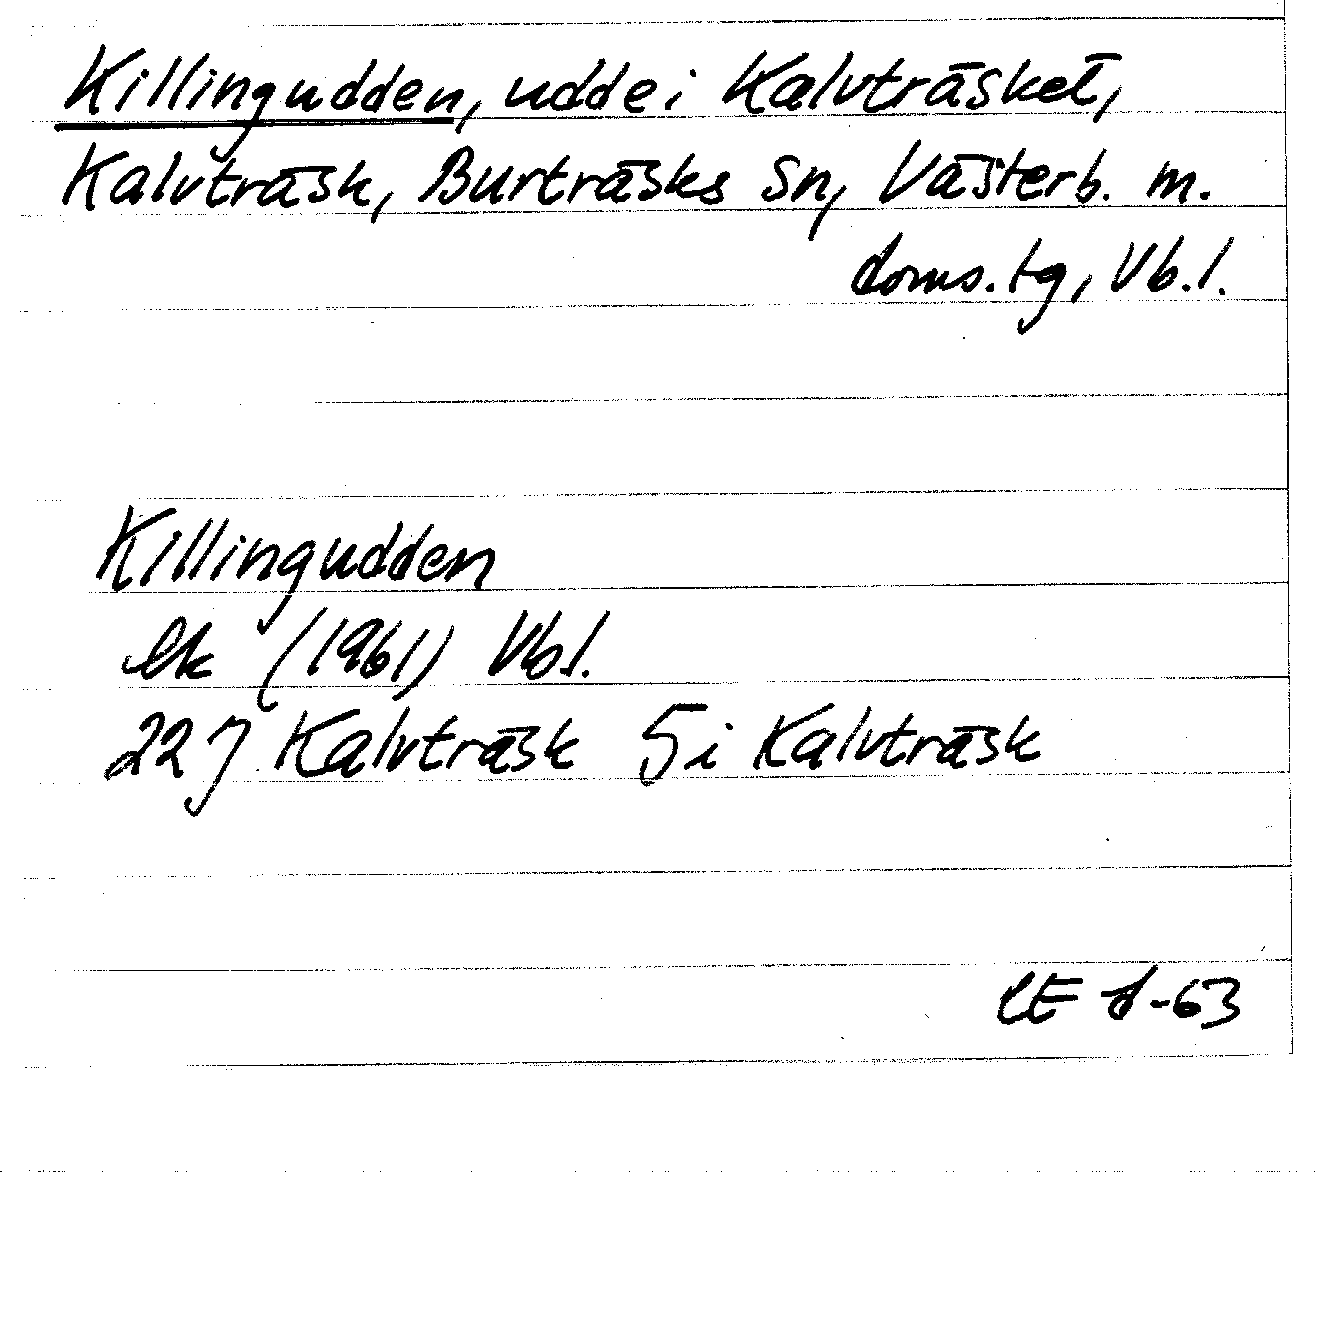 Killingudden, udde i Kalvträsket,
Kalvträsk, Burträsks sn, Västerb. m.
doms. tg, Vb. l.
Killingudden
Ek (1961) Vb l.
22 J Kalvträsk 5 i Kalvträsk
-63